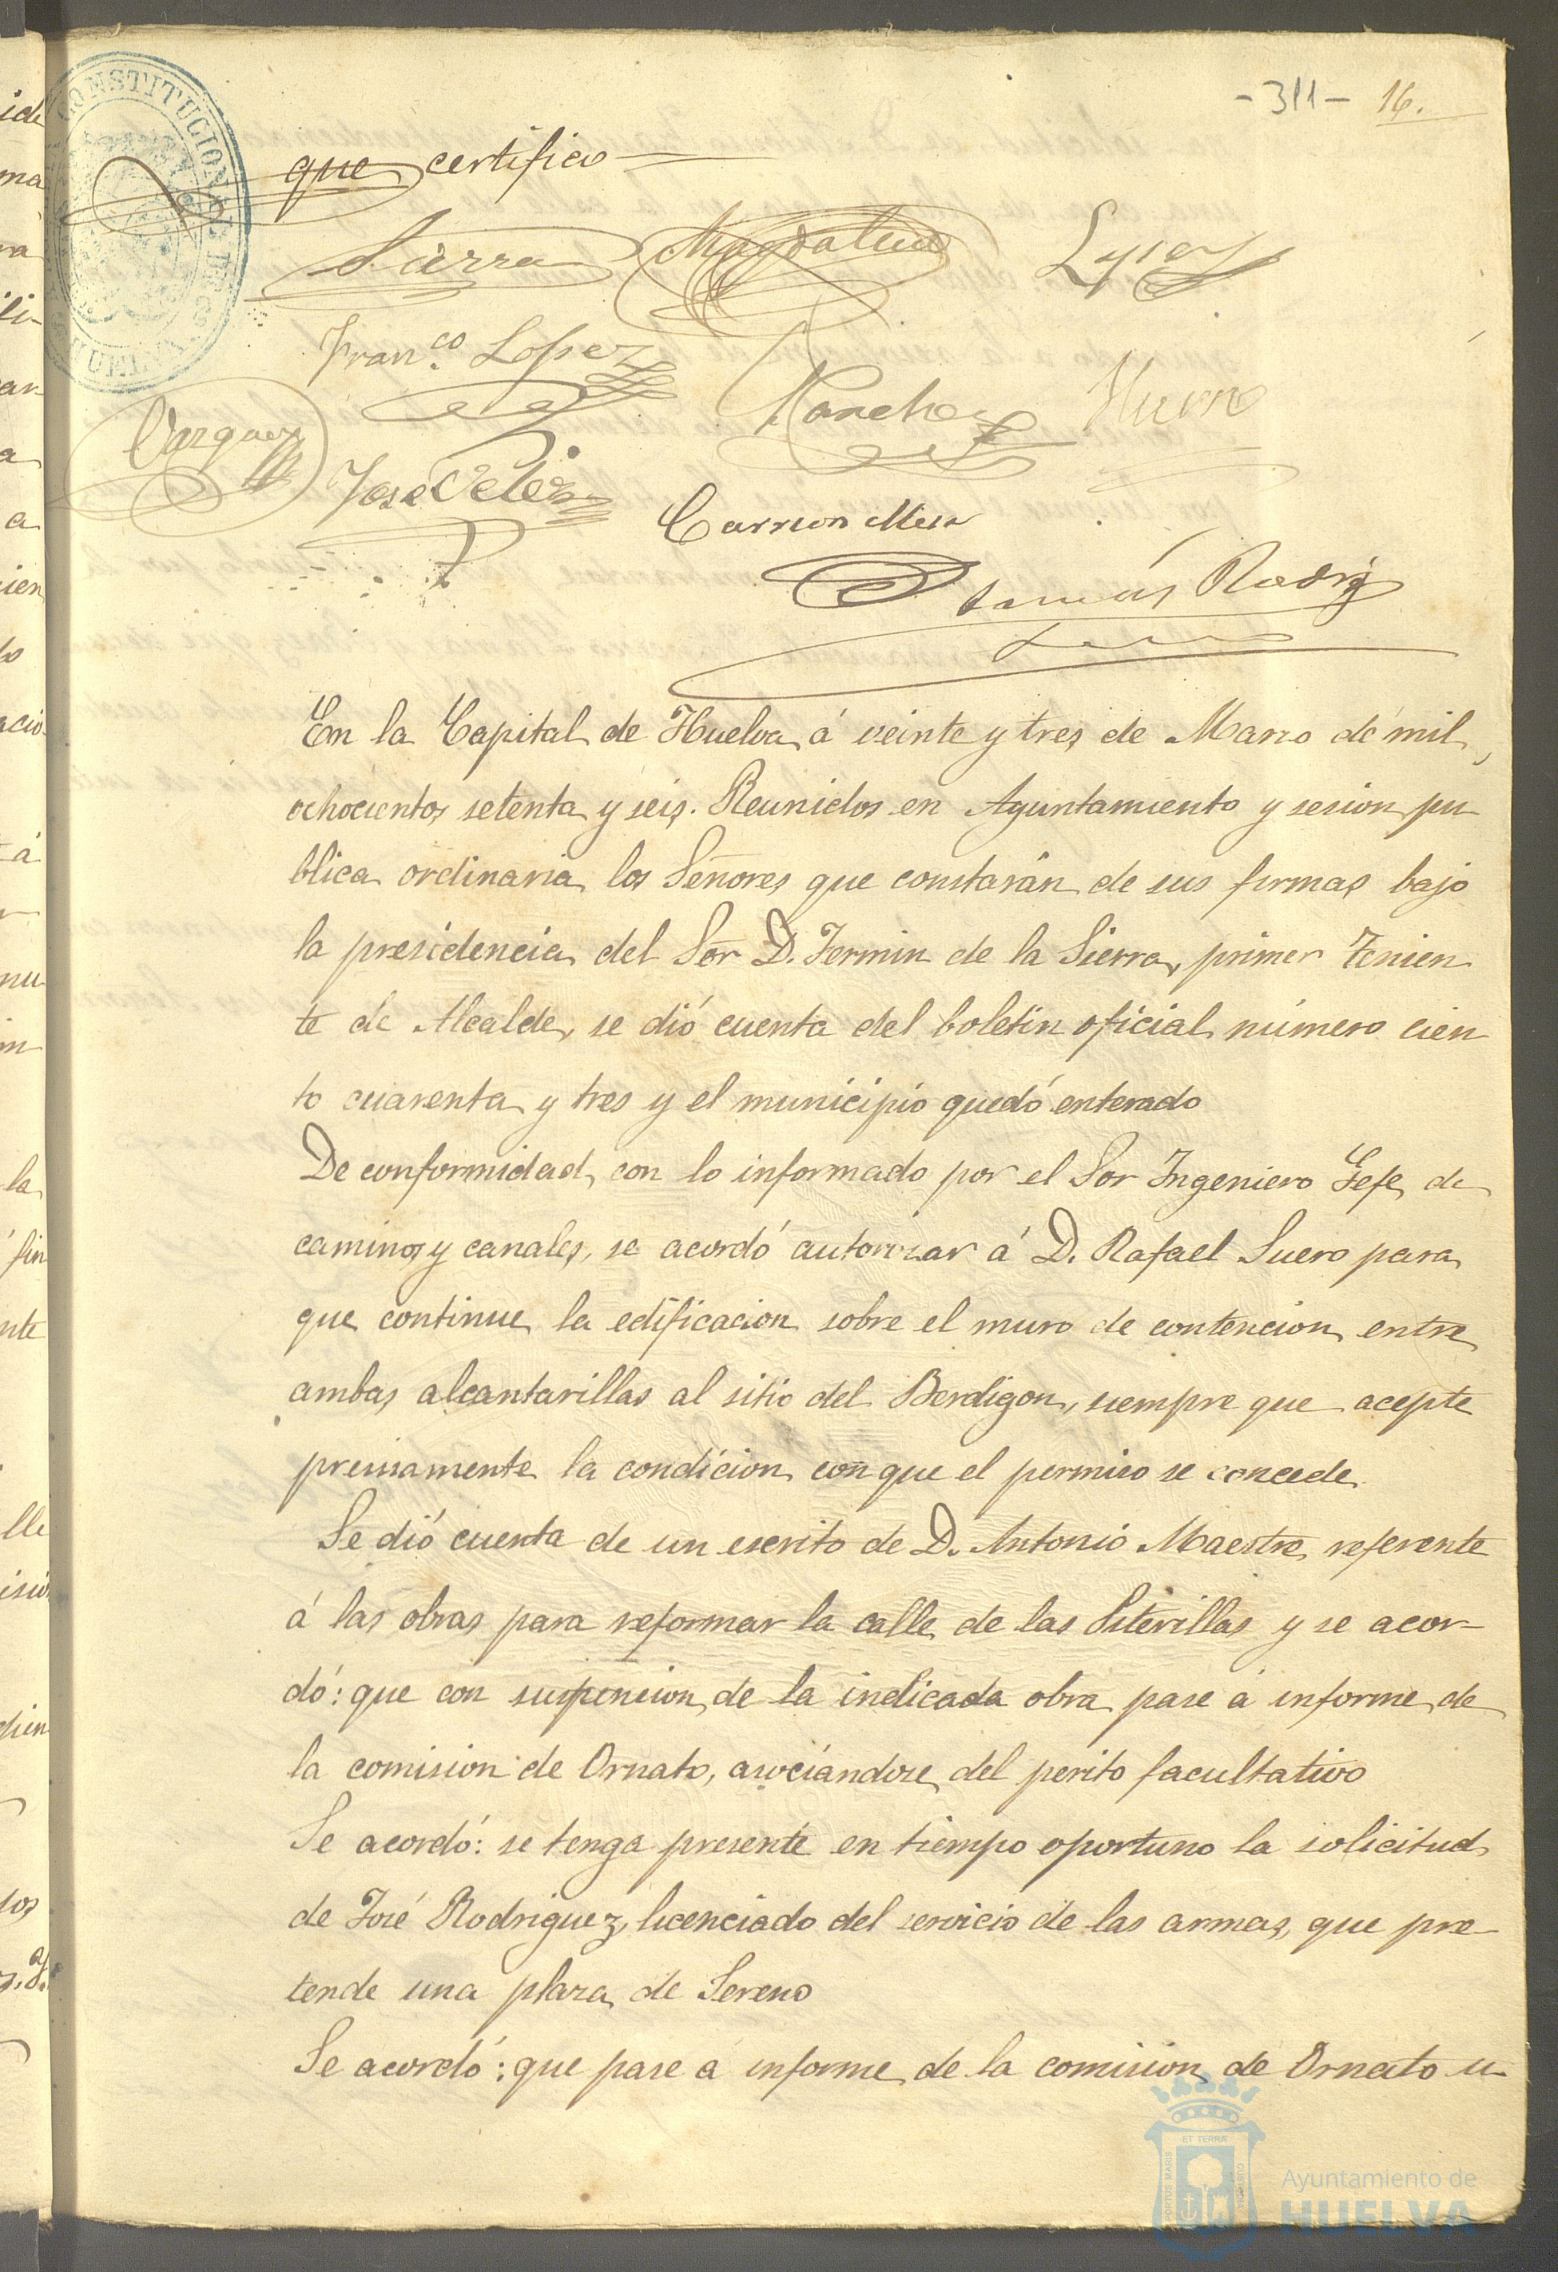 -311- 16.
CONSTITUCIONAL
que certifico
Sierra Magdalena Lopez
Franco. Lopez
Vazquez Sanchez Suero
José Velez
Carrion Mesa
Tomás Rodrig
En la Capital de Huelva á veinte y tres de Marzo de mil
ochocientos setenta y seis. Reunidos en Ayuntamiento y sesion pu
blica ordinaria los Señores que constarán de sus firmas bajo
la presidencia del Sor D. Fermin de la Sierra, primer Tenien
te de Alcalde, se dió cuenta del boletin oficial número cien
to cuarenta y tres y el municipio quedó enterado
De conformidad con lo informado por el Sor Ingeniero Gefe de
caminos y canales, se acordó autorizar á D. Rafael Suero para
que continue la edificacion sobre el muro de contencion entre
ambas alcantarillas al sitio del Berdigon, siempre que acepte
previamente la condicion con que el permiso se concede
Se dió cuenta de un escrito de D. Antonio Maestre referente
á las obras para reformar la calle de las Siterillas y se acor-
dó: que con suspension de la indicada obra pase á informe de
la comision de Ornato, asociándose del perito facultativo
Se acordó: se tenga presente en tiempo oportuno la solicitud
de José Rodriguez, licenciado del servicio de las armas, que pre-
tende una plaza de Sereno
Se acordó: que pase á informe de la comision de Ornato u-
Ayuntamiento de
HUELVA